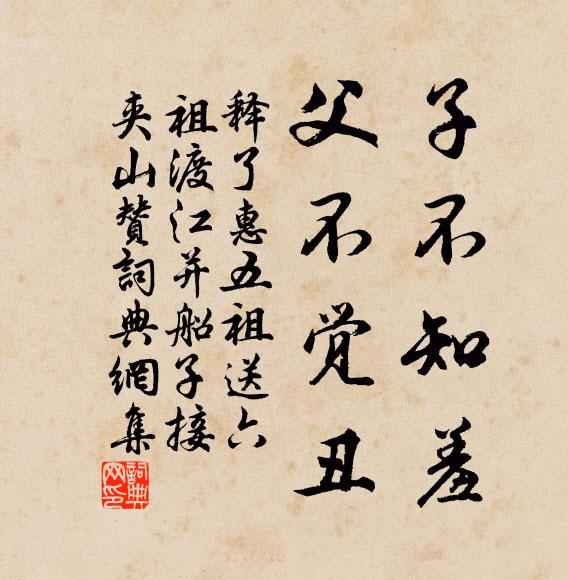 子不知羞
父不觉丑
释了惠五祖送六
祖渡江并船子接
夹山赞詞典網集
詞典网印